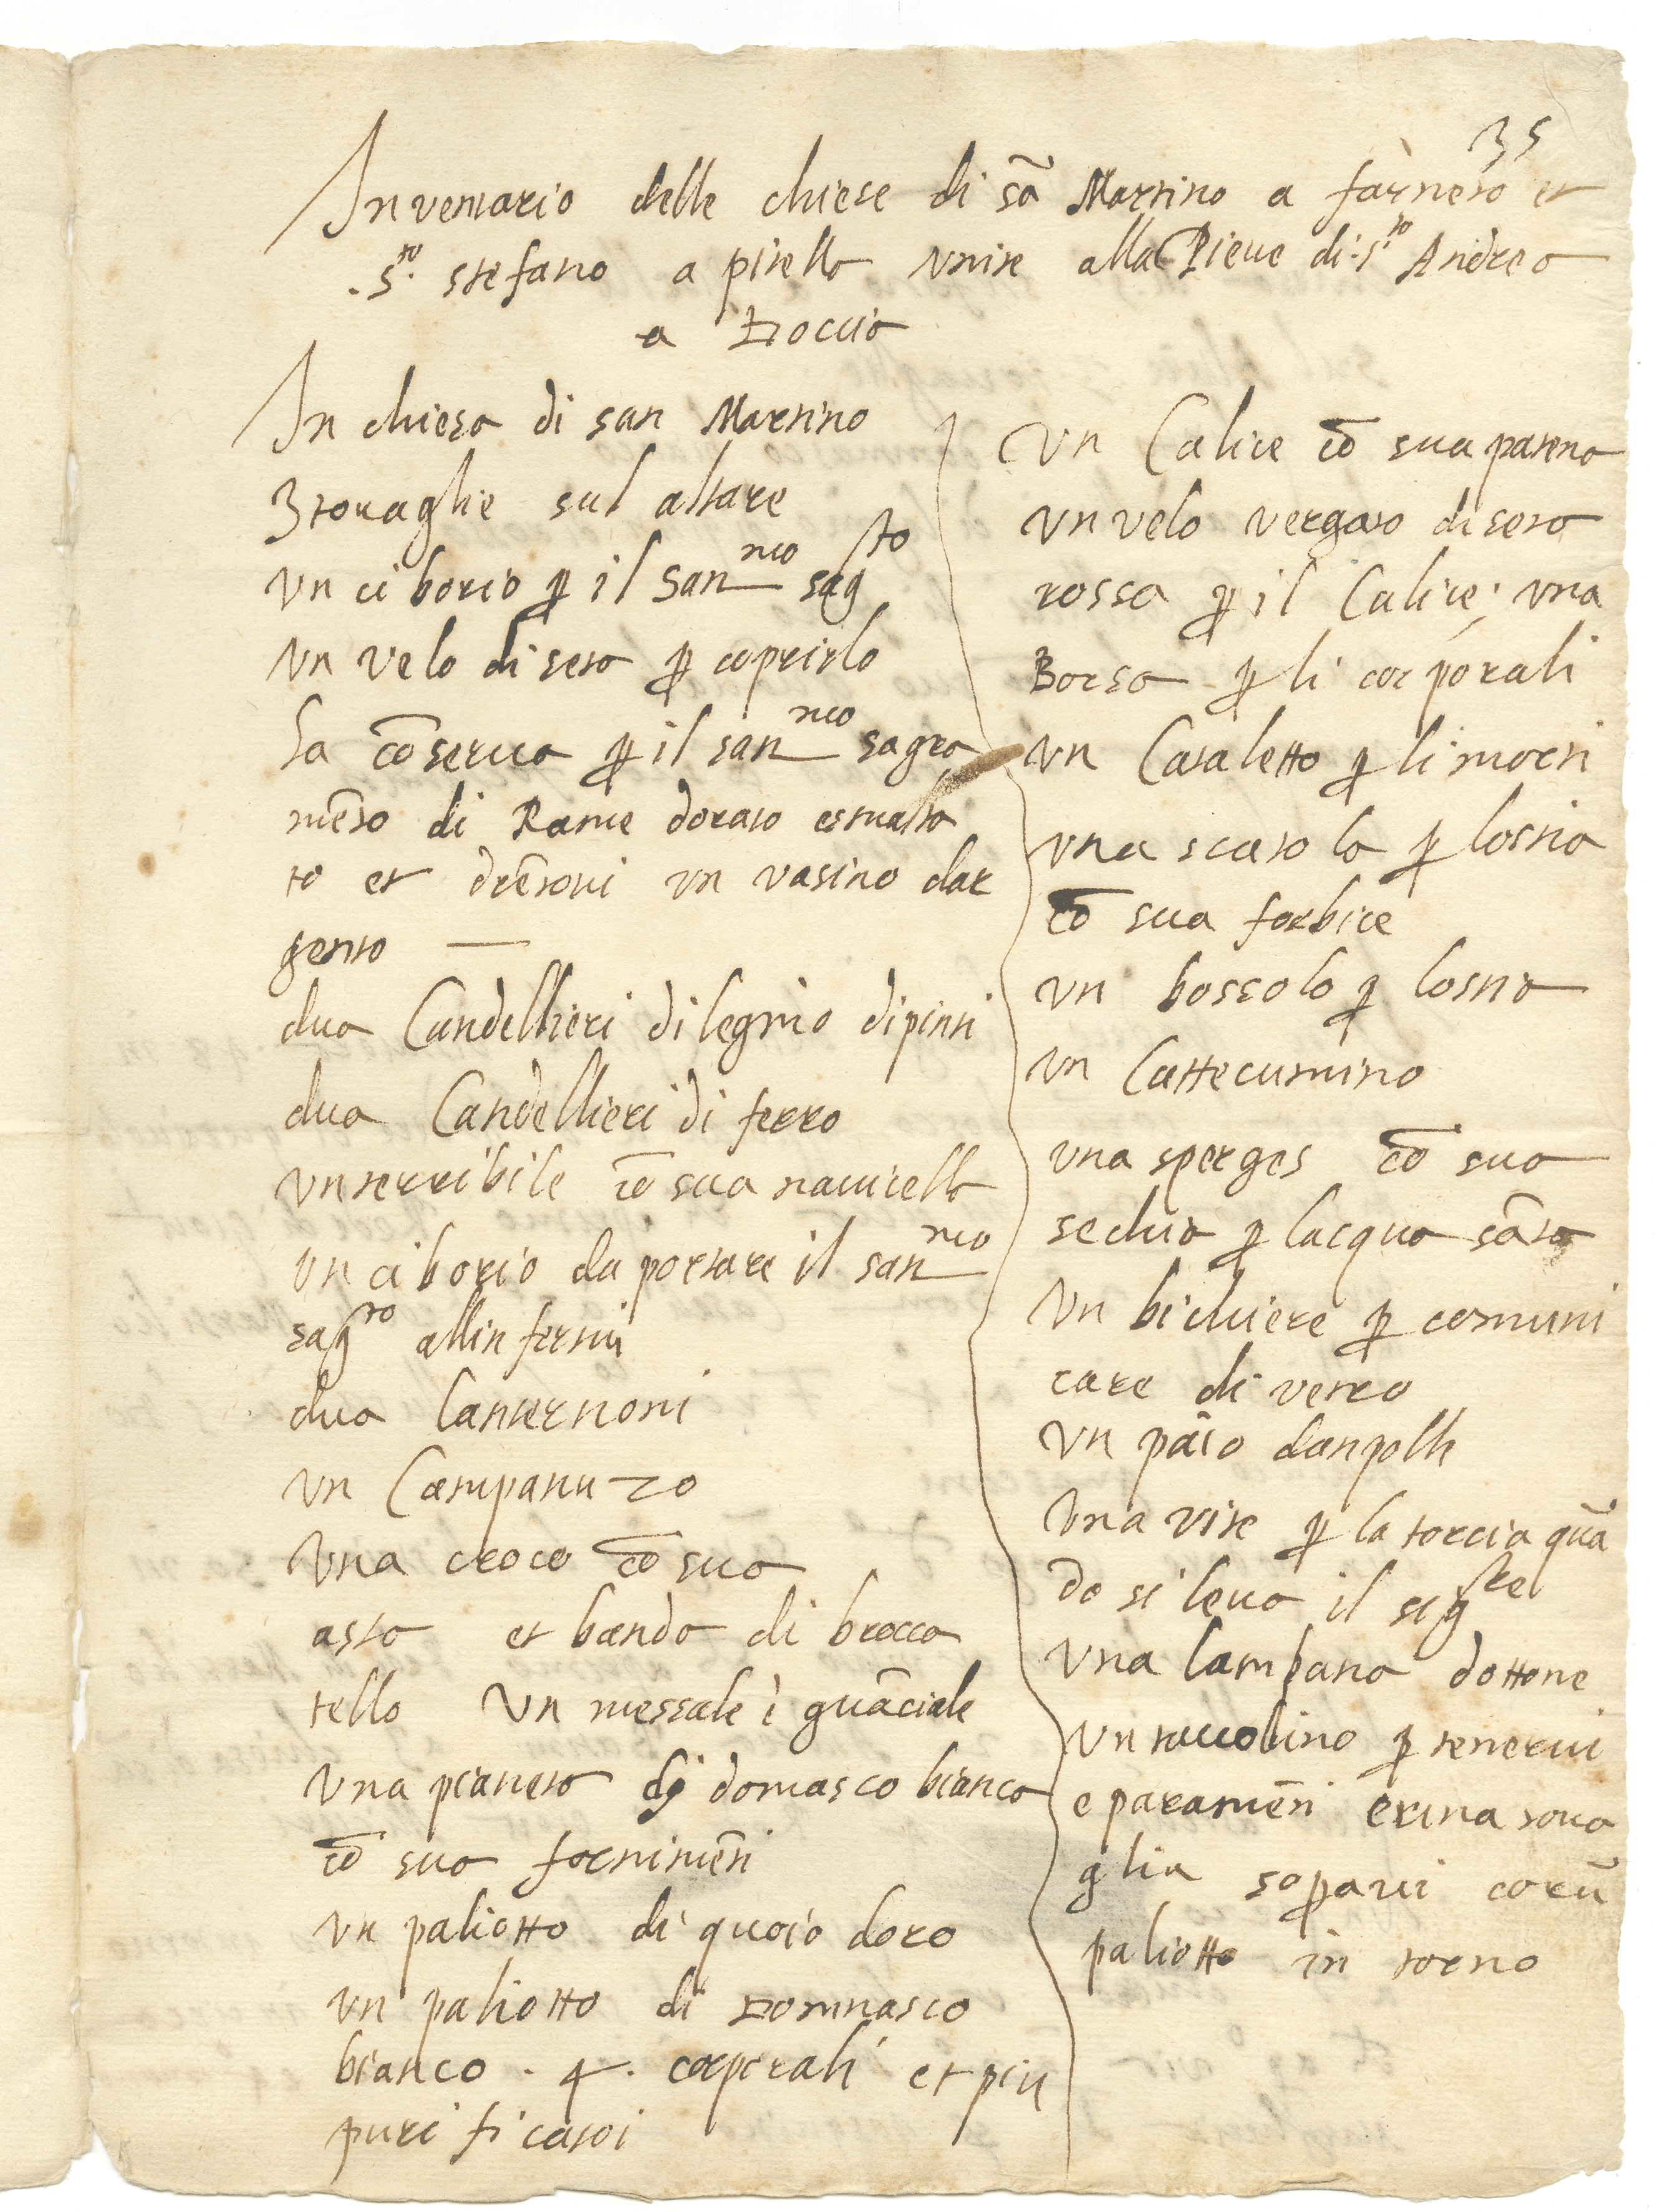 35
Inventario delle chiese di sā Martino a farneto et
.s.to stefano a pitella unite alla Pieve di .s.to Andrea
a Doccia
In chiesa di san Martino
3 tovaglie sul altare
un ciborio ꝑ il San.mo sag.to
un velo di seta ꝑ coprirlo
la cōserva ꝑ il san.mo sagra
mēto di Rame dorato esmalta
to et drētovi un vasino dar
gento —
dua Candellieri di legnio dipinti
dua Candellieri di ferro
un terribile cō sua navicella
un ciborio da portare il san.mo
sag.to allinfermi
dua lanternoni
un Campanuzo
una croce cō sua
asta et banda di brocca
tello un messale i guāciale
una pianeta di domasco bianco
cō suo fornimēti
un paliotto di quoio doro
un paliotto di Dommasco
bianco . 4 . corporali et piu
purificatoi
un Calice cō sua patena
un velo vergato di seta
rossa ꝑ il Calice; una
Borsa ꝑ li corporali
un Cataletto ꝑ li morti
una scatola ꝑ lostia
cō sua forbice
un bossolo ꝑ lostia
un Cattecumino
una sperges cō sua
sechia ꝑ lacqua sāta
un bichiere ꝑ comuni
care di vetro
un paio danpolle
una vite ꝑ la torcia quā
do si leva il sig.re
una lampana dottone
un tavolino ꝑ tenervi
e paramēti et una tova
glia sopravi co ru
paliotto in torno